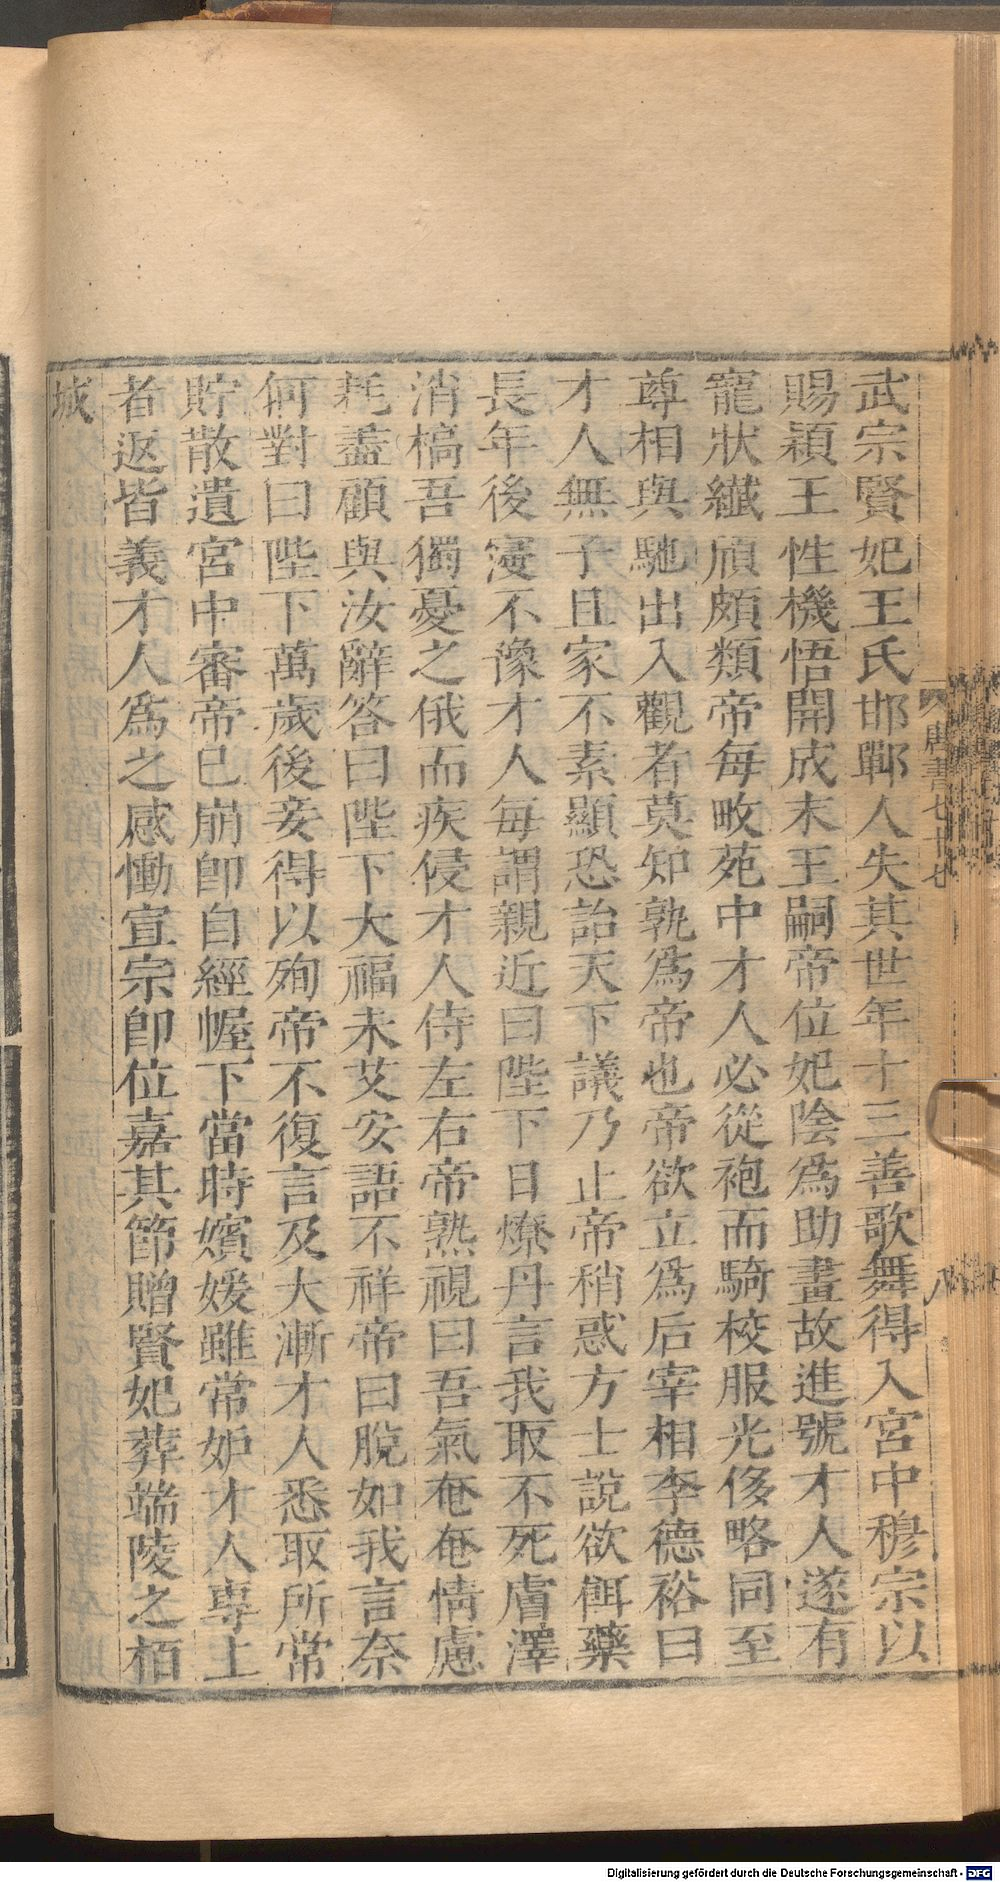 武宗賢妃王氏邯鄲人失其世年十三善歌舞得入宮中穆宗以
賜穎王性機悟開成末王嗣帝位妃陰為助畫故進號才人遂有
寵狀纖頎頗類帝每畋苑中才人必從袍而騎校服光侈略同至
尊相與馳出入觀者莫知孰為帝也帝欲立為后宰相李德裕曰
才人無子且家不素顯恐詒天下議乃止帝稍惑方士說欲餌藥
長年後寖不豫才人每謂親近曰陛下日燎丹言我取不死膚澤
消槁吾獨憂之俄而疾侵才人侍左右帝熟視曰吾氣奄奄情慮
耗盡顧與汝辭答曰陛下大福未艾安語不祥帝曰脫如我言奈
何對曰陛下萬歲後妾得以殉帝不復言及大漸才人悉取所常
貯散遺宮中審帝已崩即自經幄下當時嬪媛雖常妒才人專上
者返皆義才人為之感慟宣宗即位嘉其節贈賢妃葬端陵之栢
城
唐書七十七
八
Digitalisierung gefördert durch die Deutsche Forschungsgemeinschaft - DFG